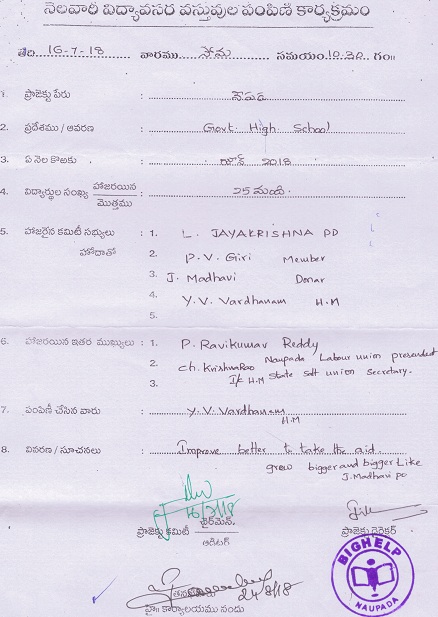 నెలవారీ విద్యావసర వస్తువుల పంపిణీ కార్యక్రమం
తేది 16-7-18 వారము సోమ సమయం 10.30 గం॥
1. ప్రాజెక్టు పేరు : నౌపడ
2. ప్రదేశము / ఆవరణ : Govt. High School
3. ఏ నెల కొఱకు : జూన్ 2018
4. విద్యార్థుల సంఖ్య హాజరయిన / మొత్తము : 25 మంది.
5. హాజరైన కమిటీ సభ్యులు : 1. L. JAYAKRISHNA PD
హోదాతో 2. P.V. Giri Member
3. J. Madhavi Donar
4. Y.V. Vardhanam H.M
5.
6. హాజరయిన ఇతర ముఖ్యులు : 1. P. Ravikumar Reddy
2. Ch. KrishnaRao Naupada Labour union presendent
3. I/c H.M State salt union Secretary.
7. పంపిణీ చేసిన వారు : Y.V. Vardhanam
H.M
8. వివరణ / సూచనలు : Improve better to take the aid.
grow bigger and bigger Like
J. Madhavi
16/7/18
ప్రాజెక్టు కమిటీ ఛైర్మెన్. ప్రాజెక్టు డైరెక్టర్
ఆడిటర్
BIGHELP
NAUPADA
24/8/18
హై॥ కార్యాలయము నందు